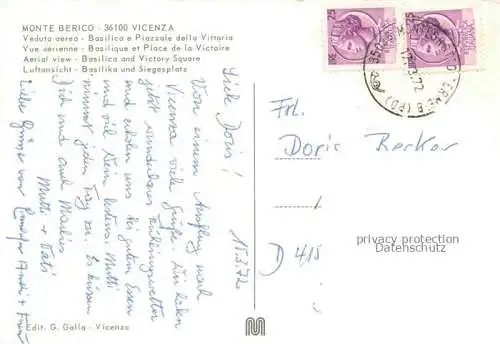 MONTE BERICO - 36100 VICENZA
Veduta aerea - Basilica e Piazzale della Vittoria
Vue aérienne - Basilique et Place de la Victoire
Aerial view - Basilica and Victory Square
Luftansicht - Basilika und Siegesplatz
15.3.72
Liebe Doris!
Von einem Ausflug nach
Vicenza viele Grüße. Wir haben
jetzt wunderbares Frühlingswetter
und erholen uns bei gutem Essen
und viel Wein bestens. Mutti
nimmt jeden Tag zu. Es küssen
Dich und auch
Mutti + Vati
Liebe Grüsse von
Frl.
Doris
D 415
privacy protection
Datenschutz
Edit. G. Galla - Vicenza